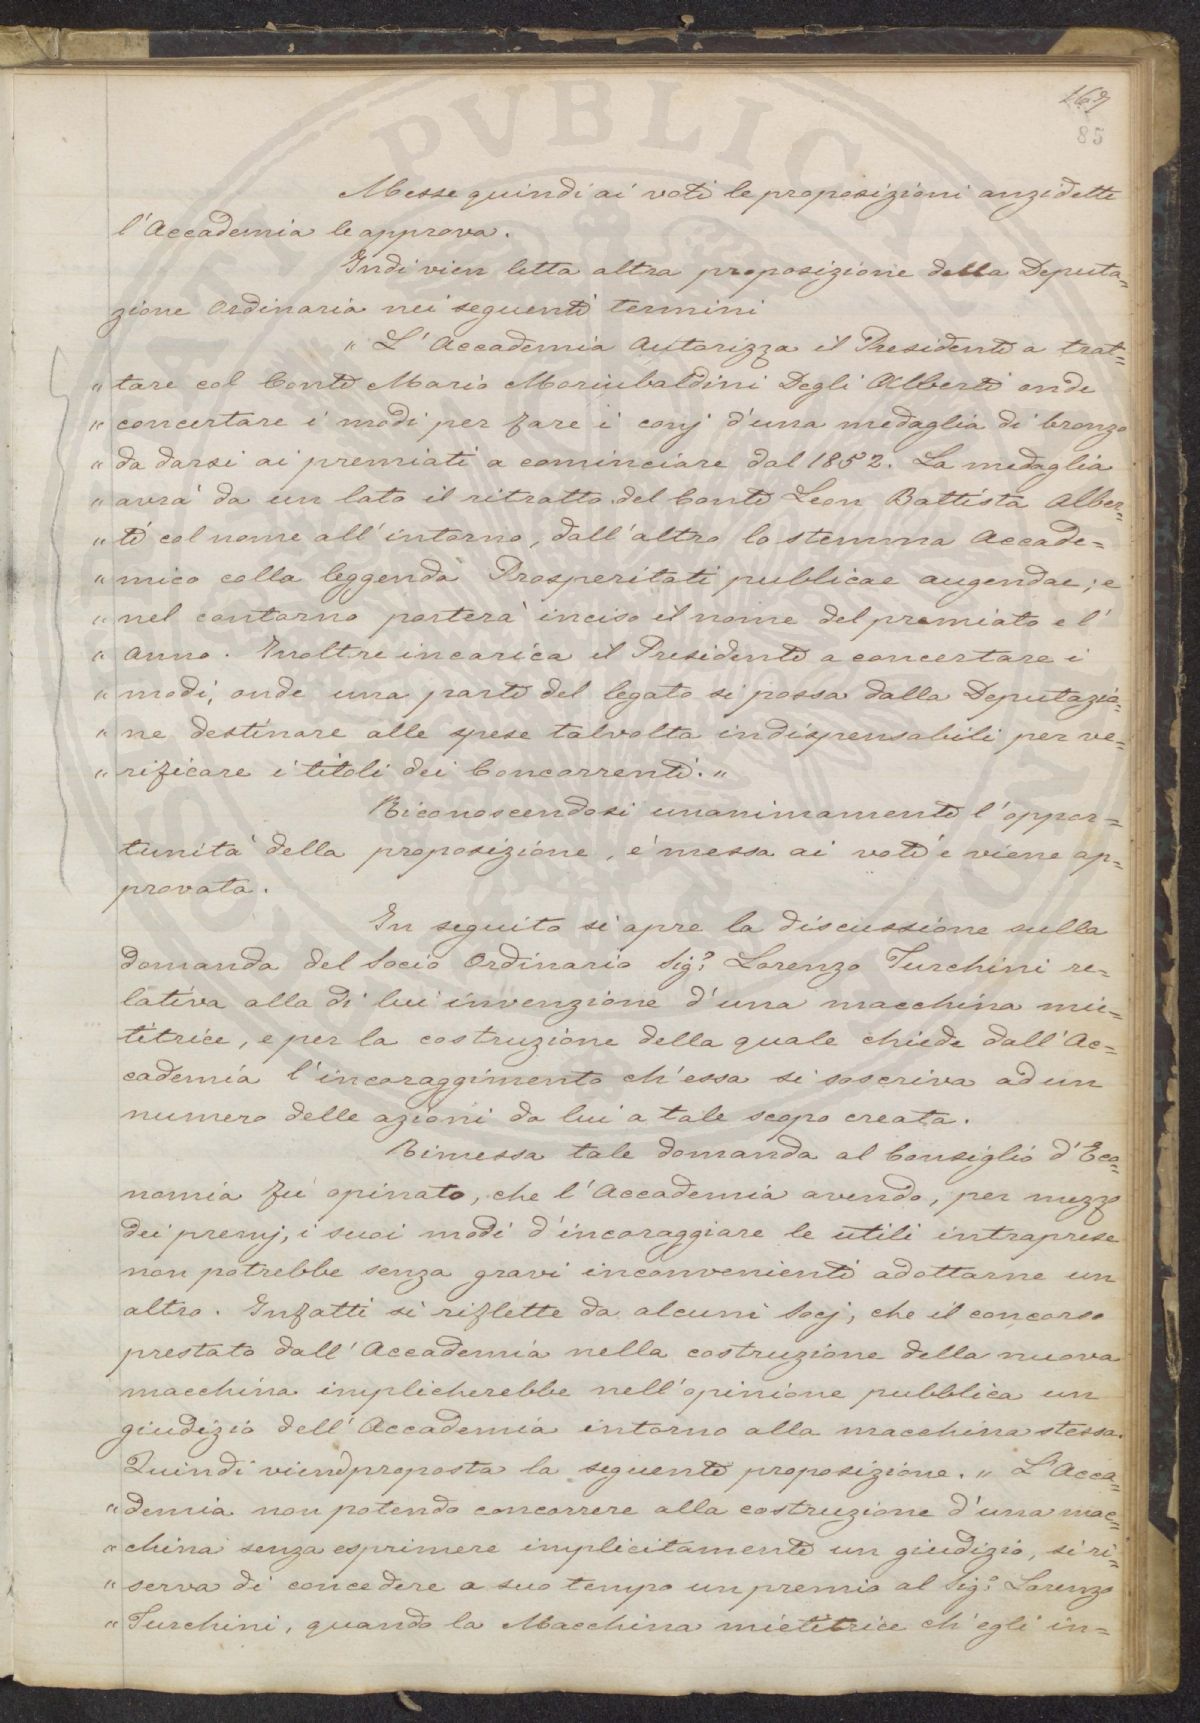 167
85
Messe quindi ai voti le proposizioni anzidette
l'Accademia le approva.
Indi vien letta altra proposizione della Deputa=
zione Ordinaria nei seguenti termini
" L'Accademia Autorizza il Presidente a trat=
" tare col Conte Mario Moriubaldini Degli Alberti onde
" concertare i modi per fare i conj d'una medaglia di bronzo
" da darsi ai premiati a cominciare dal 1852. La medaglia
" avrà da un lato il ritratto del Conte Leon Battista Alber=
" ti col nome all'intorno, dall'altro lo stemma Accade=
" mico colla leggenda Prosperitati publicae augendae; e
" nel contorno porterà inciso il nome del premiato e l'
" anno. Inoltre incarica il Presidente a concertare i
" modi, onde una parte del legato si possa dalla Deputazio=
" ne destinare alle spese talvolta indispensabili per ve=
" rificare i titoli dei Concorrenti."
Riconoscendosi unanimamente l'oppor=
tunità della proposizione, è messa ai voti e viene ap=
provata.
In seguito si apre la discussione sulla
domanda del Socio Ordinario Sigr. Lorenzo Turchini re=
lativa alla di lui invenzione d'una macchina mie=
titrice, e per la costruzione della quale chiede dall'Ac=
cademia l'incoraggimento ch'essa si soscriva ad un
numero delle azioni da lui a tale scopo creata.
Rimessa tale domanda al Consiglio d'Eco=
nomia fu opinato, che l'Accademia avendo, per mezzo
dei premj, i suoi modi d'incoraggiare le utili intraprese
non potrebbe senza gravi inconvenienti adottarne un
altro. Infatti si riflette da alcuni Socj, che il concorso
prestato dall'Accademia nella costruzione della nuova
macchina implicherebbe nell'opinione pubblica un
giudizio dell'Accademia intorno alla macchina stessa.
Quindi viene proposta la seguente proposizione. " L'Acca=
" demia non potendo concorrere alla costruzione d'una mac=
" china senza esprimere implicitamente un giudizio, si ri=
" serva di concedere a suo tempo un premio al Sigr. Lorenzo
" Turchini, quando la Macchina mietitrice ch'egli in=